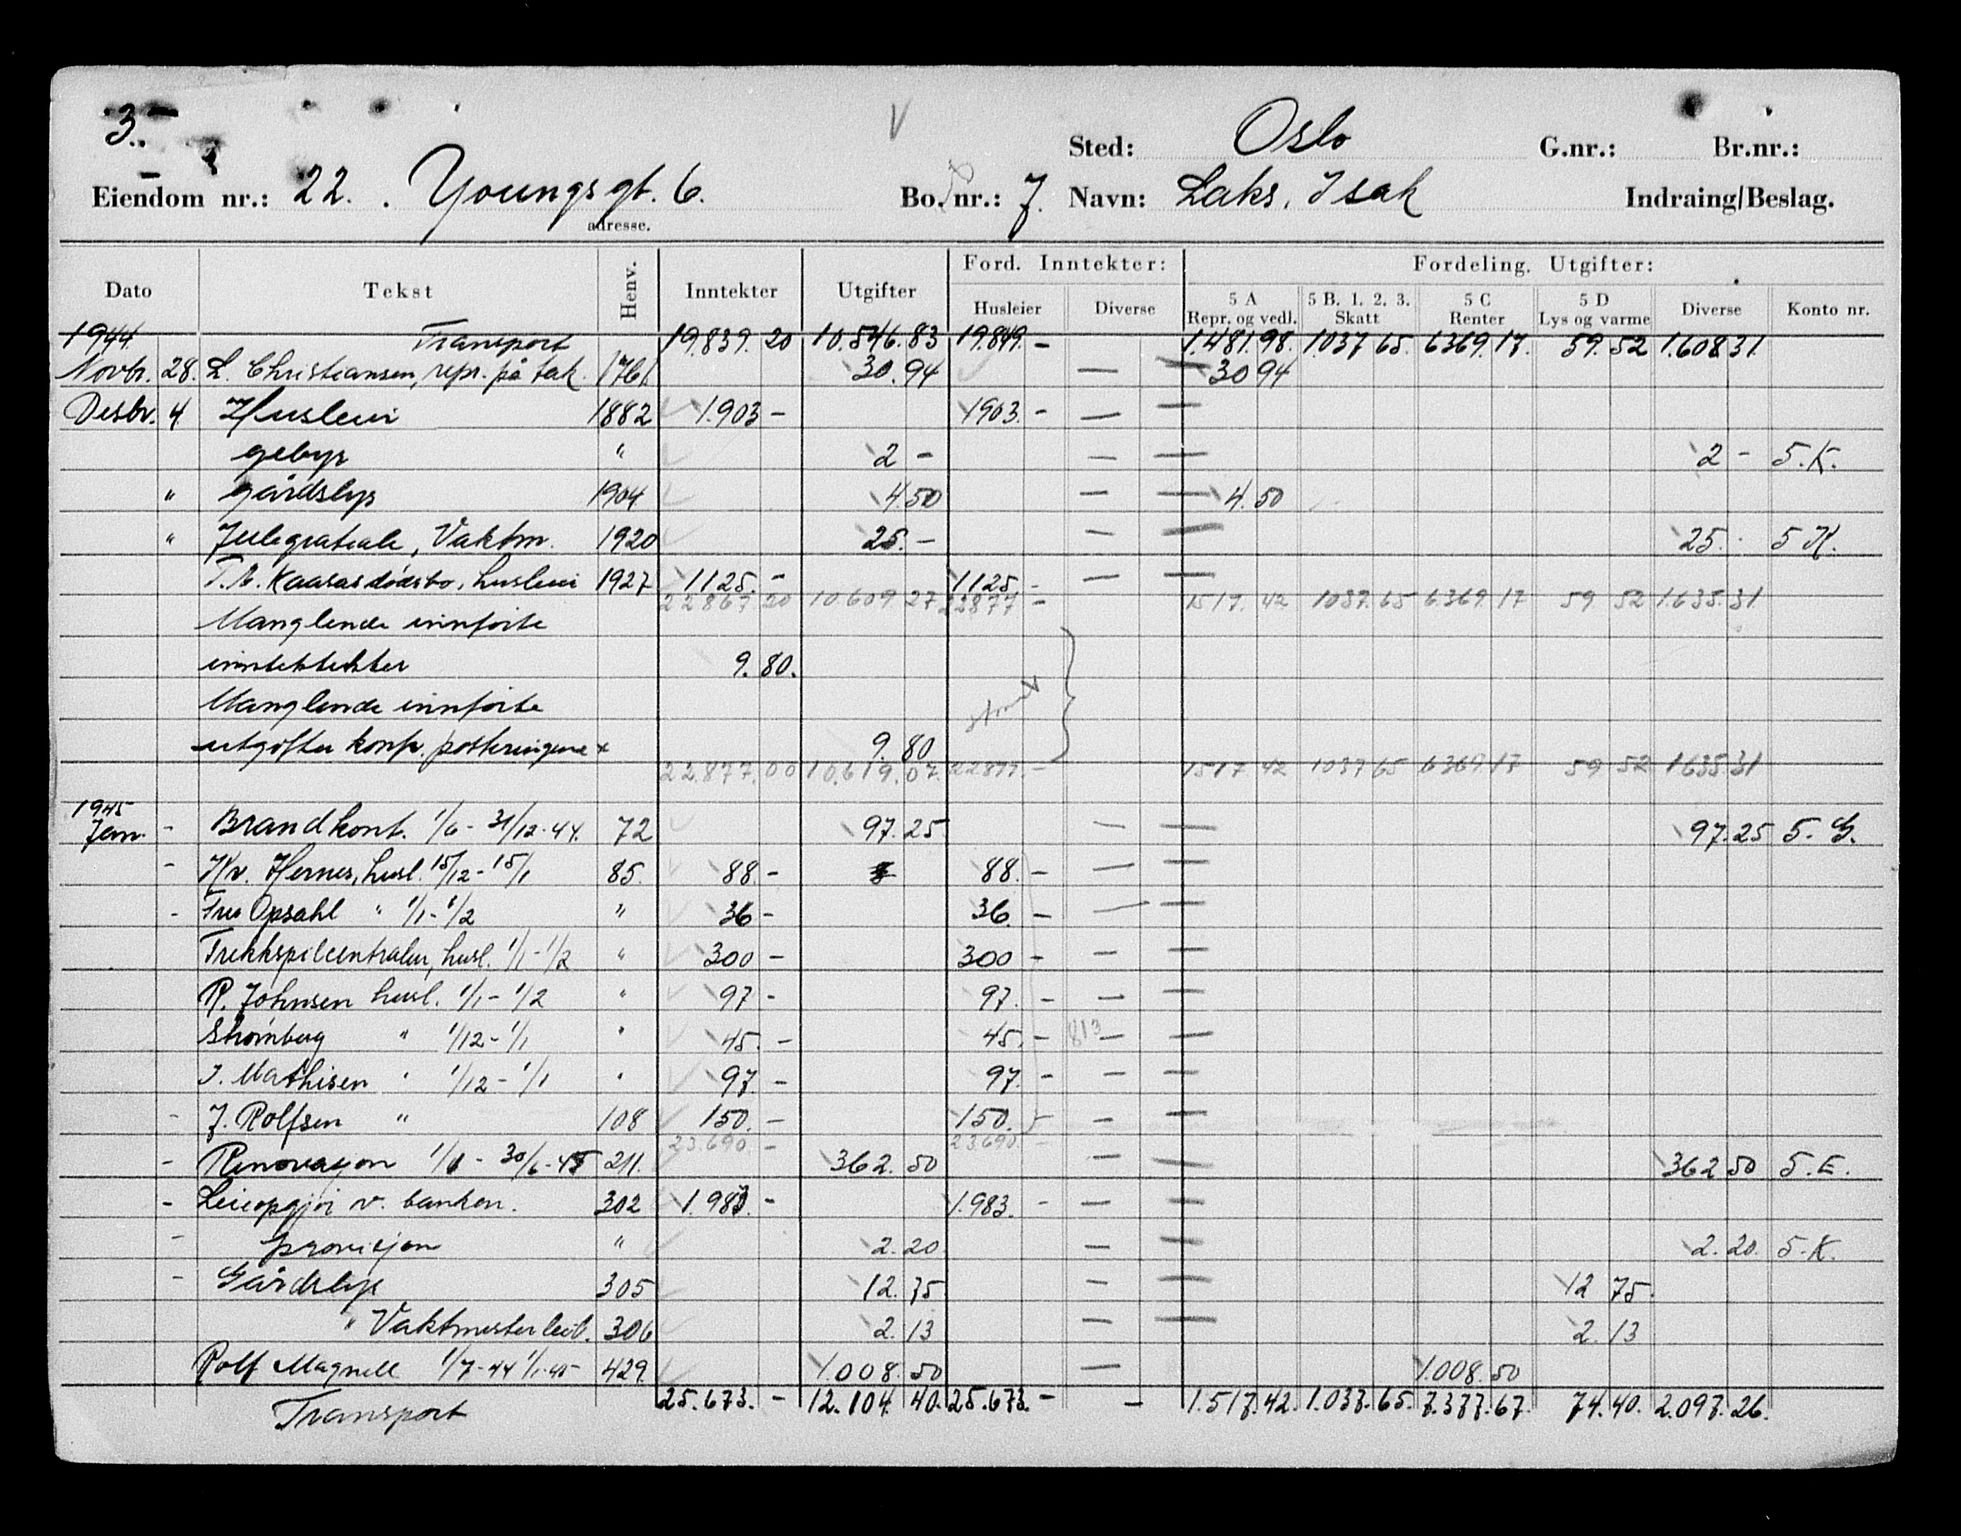 3.
Sted: Oslo G.nr.: Br.nr.:
Eiendom nr.: 22. Youngsgt. 6. Bo. nr.: 7. Navn: Laks, Isak Indraing/Beslag.
adresse.
Ford. Inntekter: Fordeling. Utgifter:
Dato Tekst Henv. Inntekter Utgifter Husleier Diverse 5 A Repr. og vedl. 5 B. 1. 2. 3. Skatt 5 C Renter 5 D Lys og varme Diverse Konto nr.
1944 Transport 19.839. 20 10.546. 83 19.849. - 1.481. 98. 1.037 65. 6369. 17. 59. 52 1.608 31.
Novbr. 28. L. Christiansen, repr. på tak. 1761. 30. 94 — — 30 94
Desbr. 4. Husleier 1882 1.903 - 1903. - — —
gebyr " 2 - — — 2 - 5. K.
" gårdslys 1904 4.50 — — 4. 50
" Julegratiale, Vaktm. 1920 25. - — — 25. - 5 K.
T. A. Kaasas dødsbo, husleie 1927 1125. - 1125. - — —
22867 20 10609 27 22877 - 1517. 42 1037. 65 6369. 17 59 52 1.635. 31
Manglende innførte
inntektekter 9. 80.
Manglende innførte
utgifter konfr. posteringene x 9. 80
22.877. 00 10.619. 07 22877. - 1517 42 1037 65 6369. 17 59 52 1635 31
1945
Jan. - Brandkont. 1/6 - 31/12-44. 72 97. 25 — — 97. 25 5. G.
- Hr. Hernes, husl. 15/12 - 15/1 85. 88. - 88. - — —
- Fru Opsahl " 1/1 - 1/2 " 36 - 36 - — —
Trekkspilcentralen, husl. 1/1 - 1/2 " 300 - 300 - — —
R. Johnsen husl. 1/1 - 1/2 " 97 - 97. - — —
Strømberg " 1/12 - 1/1 " 45. - 45. - 813 — —
I. Mathisen " 1/12 - 1/1 " 97 - 97. - — —
- J. Rolfsen " 108 150. - 150. - — —
23.690. - 23690. -
- Renovasjon 1/1 - 30/6-45 211. 362. 50 — — 362 50 5. E.
- Leieopgjør v. banken. 302 1.983 - 1.983. - — —
- provisjon " 2. 20 — — 2. 20. 5. K.
- Gårdslys 305 12. 75 — — 12 75.
" Vaktmesterleil. 306 2. 13 — — 2. 13
Rolf Magnell 1/7-44 1/1-45 429. 1.008. 50 — 1.008. 50
Transport 25.673. - 12. 104 40. 25.673. - — 1.517. 42. 1.037. 65. 7.377. 67. 74. 40. 2.097. 26.